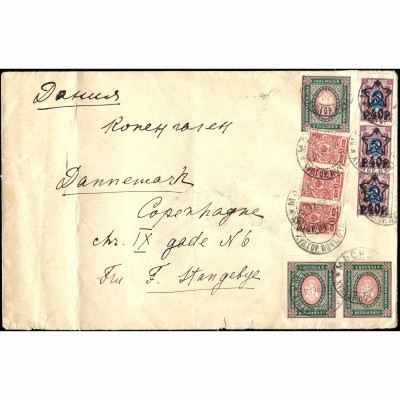 Дания
Копенгаген
Dannemark
Copenhague
chr. IX gade N 6
Fru F. Stangebye
Р. 40 Р.
Р. 40 Р.
Р. 40 Р.